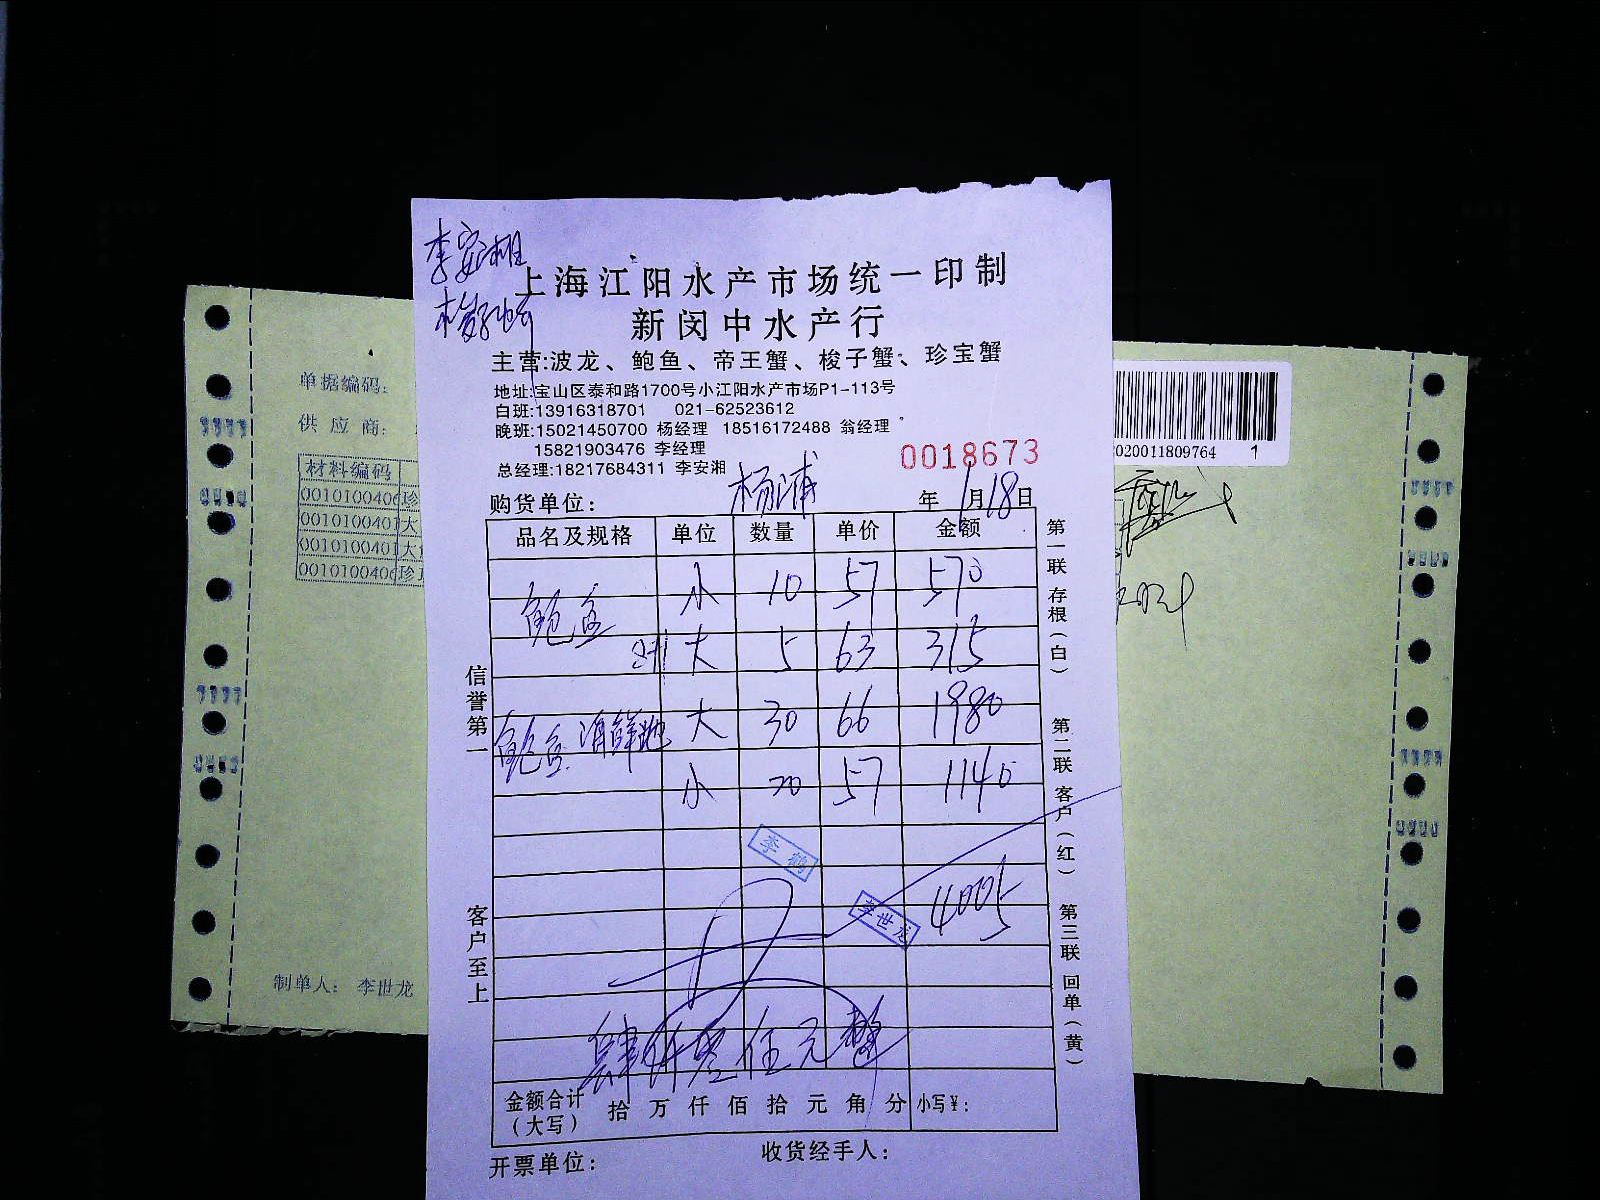 李安湘
上海江阳水产市场统一印制
新闵中水产行
主营:波龙、鲍鱼、帝王蟹、梭子蟹、珍宝蟹
地址:宝山区泰和路1700号小江阳水产市场P1-113号
白班:13916318701 021-62523612
晚班:15021450700 杨经理 18516172488 翁经理
15821903476 李经理
总经理:18217684311 李安湘
0018673
购货单位: 杨浦 年 1月18日
品名及规格 单位 数量 单价 金额
鲍鱼 小 10 57 570
大 5 63 315
鲍鱼 海鲜池 大 30 66 1980
小 20 57 1140
李鹤
李世龙
4005
肆仟零伍元整
金额合计(大写) 拾 万 仟 佰 拾 元 角 分 小写¥:
开票单位: 收货经手人:
信誉第一
客户至上
第一联 存根(白)
第二联 客户(红)
第三联 回单(黄)
单据编码:
供应商:
材料编码
0010100406 珍
001010040 大
001010040 大
0010100406 珍
制单人: 李世龙
020011809764 1